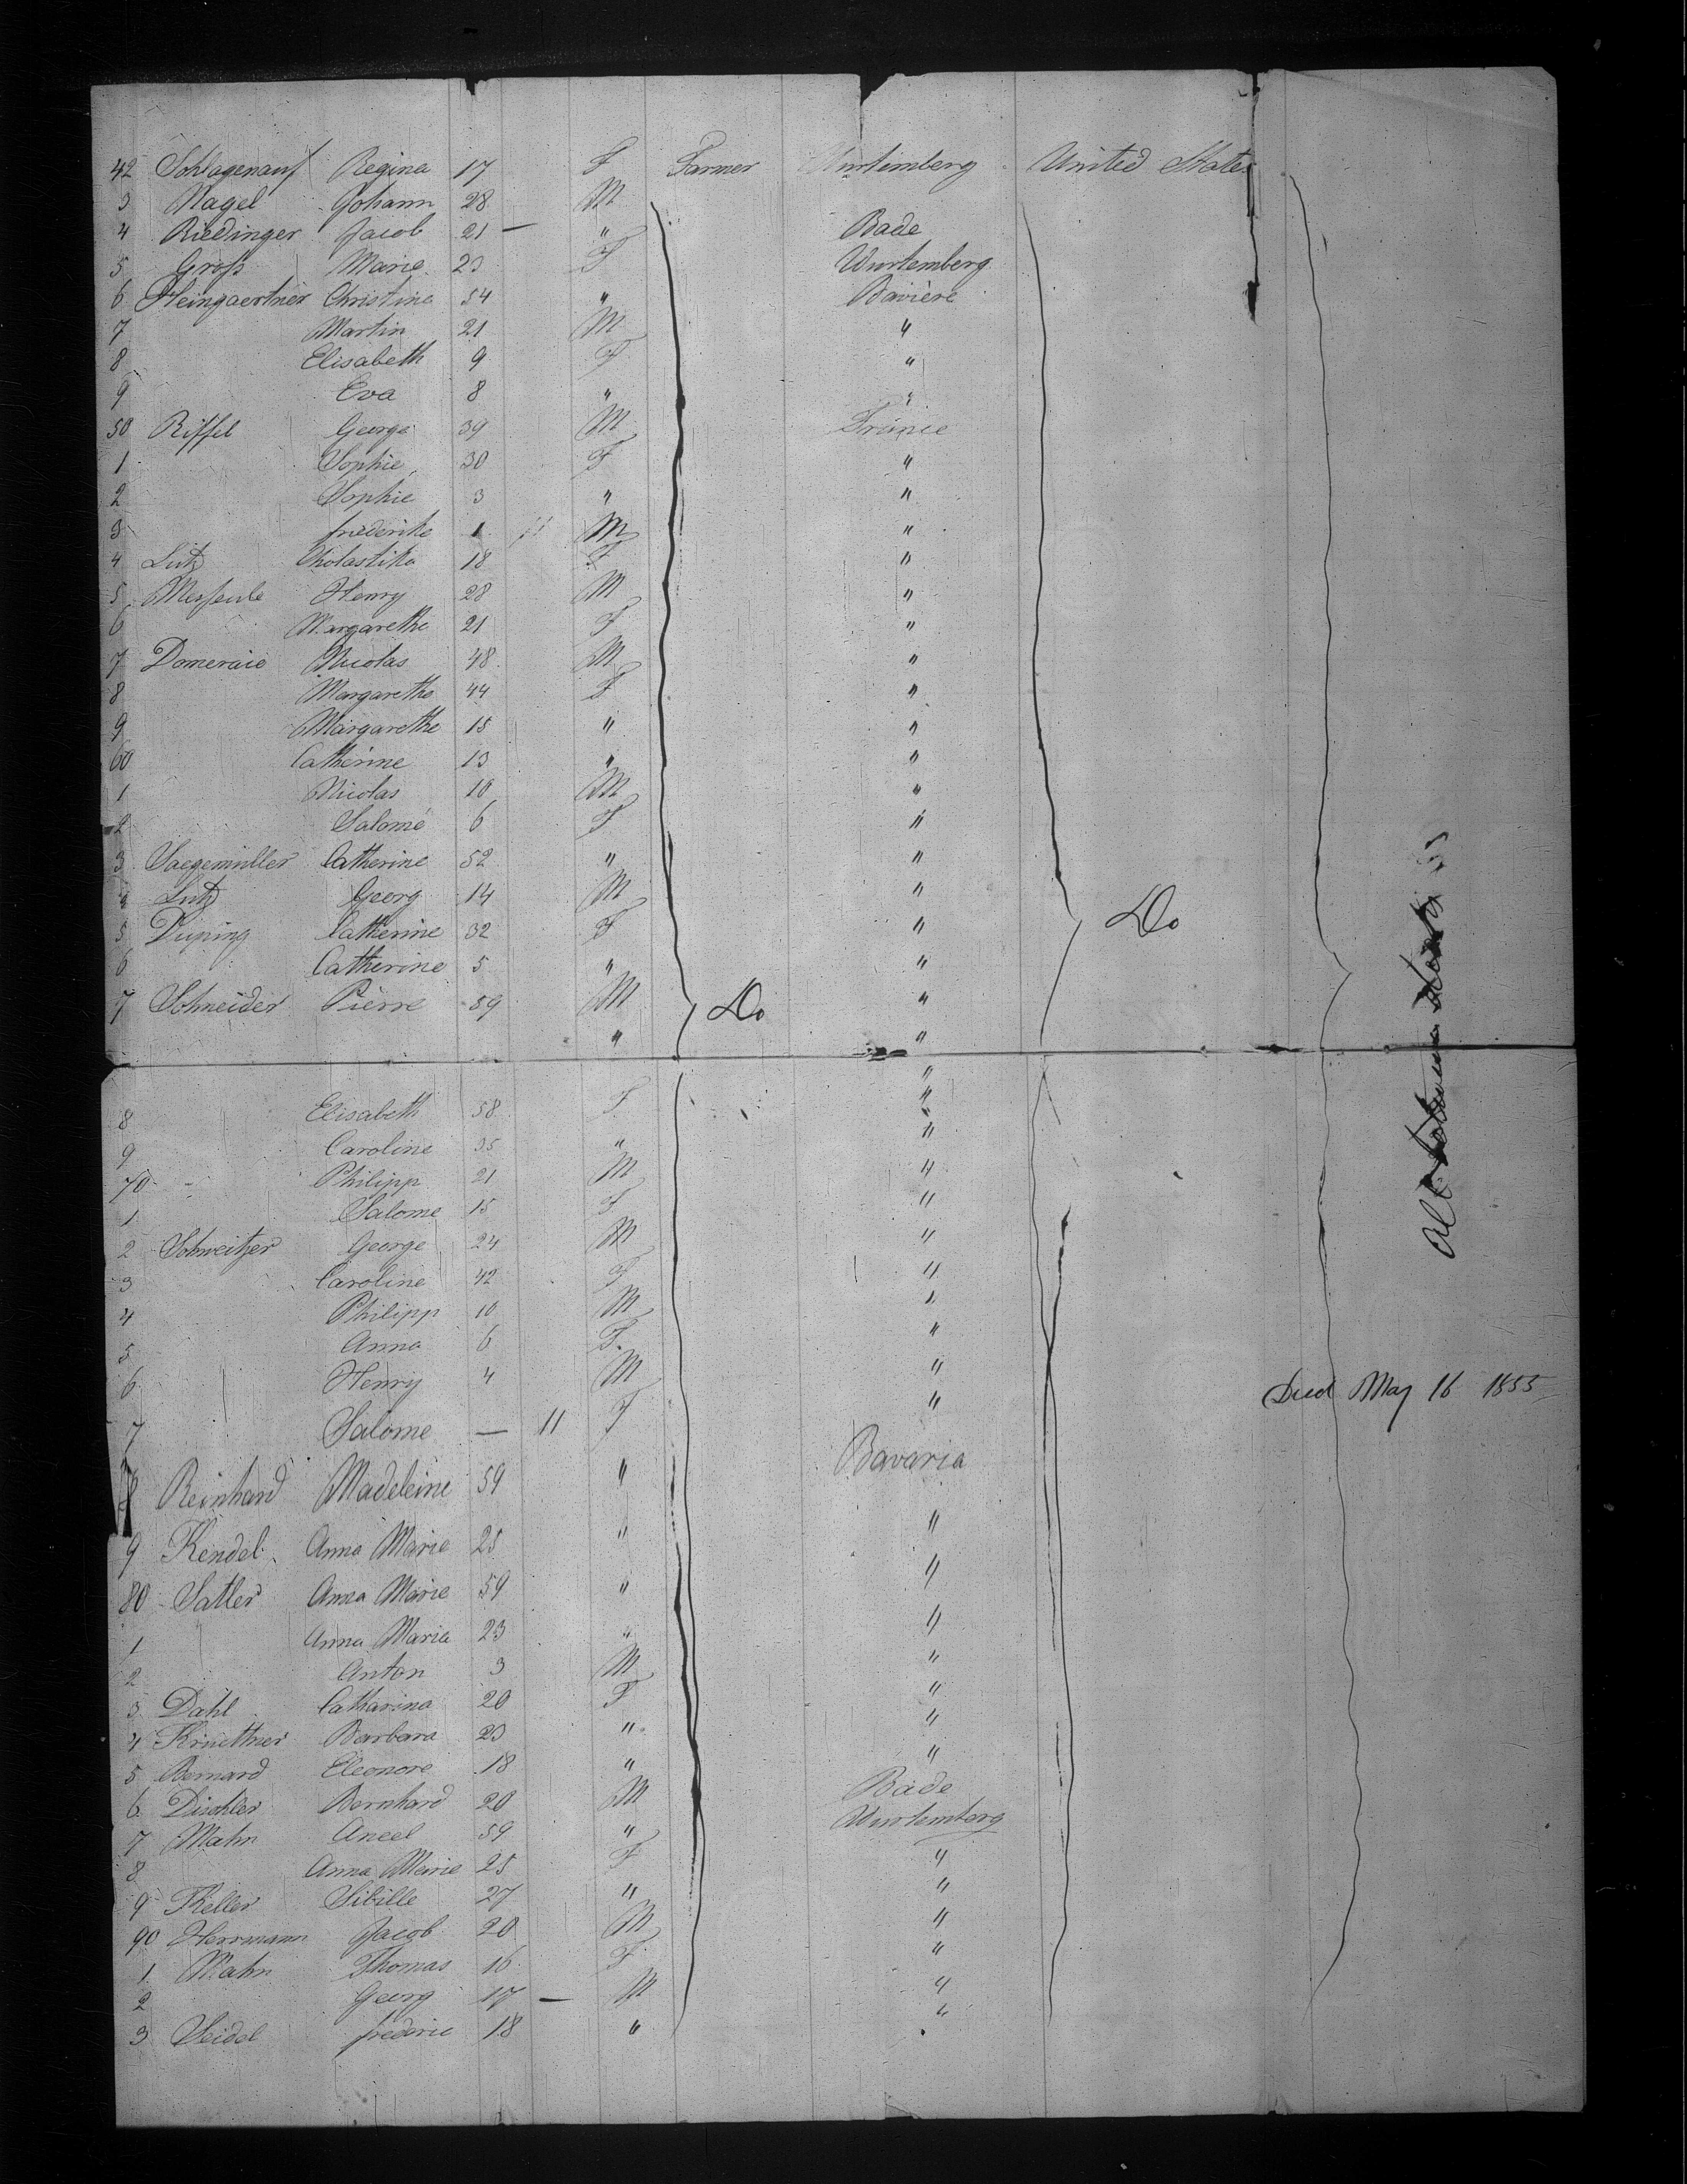 42 Schlagenauf Regina 17 F Farmer Wurtemberg United States
3 Nagel Johann 28 M
4 Riedinger Jacob 21 — " Bade
5 Groß Marie 23 F Wurtemberg
6 Heingaertner Christine 54 " Bavière
7 Martin 21 M "
8 Elisabeth 9 F "
9 Eva 8 " "
50 Riffel George 39 M France
1 Sophie 30 F "
2 Sophie 3 " "
3 friederike 1 11 M "
4 Lutz Cholastika 18 F "
5 Henry 28 M "
6 Margarethe 21 F "
7 Domeraie Nicolas 48 M "
8 Margarethe 44 F "
9 Margarethe 15 " "
60 Catherine 13 " "
1 Nicolas 10 M "
2 Salomé 6 F "
3 Saegemuller Catherine 52 " "
4 Lutz Georg 14 M "
5 Duping Catherine 32 F " Do
6 Catherine 5 " "
7 Schneider Pierre 59 M Do "
" "
"
8 Elisabeth 58 F "
9 Caroline 35 " "
70 Philipp 21 M "
1 Salome 15 F "
2 Schweitzer George 24 M "
3 Caroline 42 F "
4 Philipp 10 M "
5 Anna 6 F. "
6 Henry 4 M "
7 Salome — 11 F " Died May 16 1855
8 Reinhard Madeleine 59 " Bavaria
9 Kendel Anna Marie 25 " "
80 Satler Anna Marie 59 " "
1 Anna Maria 23 " "
2 Anton 3 M "
3 Dahl Catharina 20 F "
4 Kruettner Barbara 23 " "
5 Bernard Eleonore 18 " "
6 Dischler Bernhard 20 M Bade
7 Mahn 59 " Wurtemberg
8 Anna Marie 25 F "
9 Keller Sibille 27 " "
90 Herrmann Jacob 20 M "
1 Mahn Thomas 16 F "
2 Georg 17 — M "
3 Seidel frederic 18 " "
All